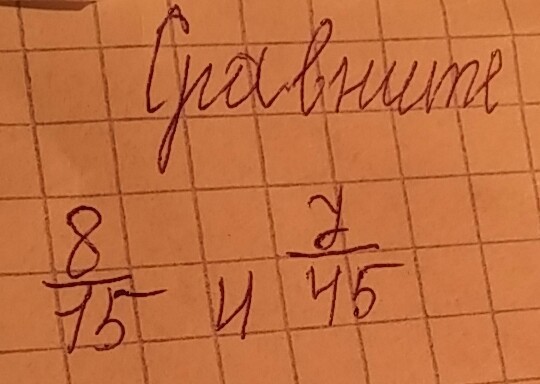 Сравните
8/15 и 7/45